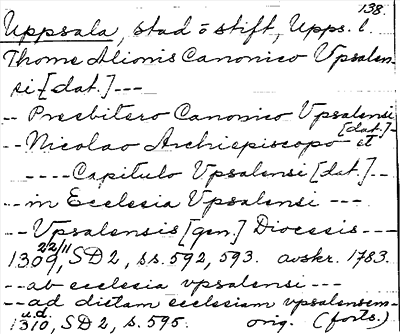 138.
Uppsala, stad o stift, Upps. l.
Thome Alionis Canonico Vpsalen-
si [dat.] ---
-- Presbitero Canonico Vpsalensi [dat.] -
-- Nicolao Archiepiscopo et
---- Capitulo Vpsalensi [dat.] --
-- in Ecclesia Vpsalensi ---
-- Vpsalensis [gen.] Diocesis ---
1309 22/11, SD 2, ss. 592, 593. avskr. 1783.
-- ab ecclesia vpsalensi ---
-- ad dictam ecclesiam vpsalensem--
1310 u.d., SD 2, s. 595. orig. (forts.)